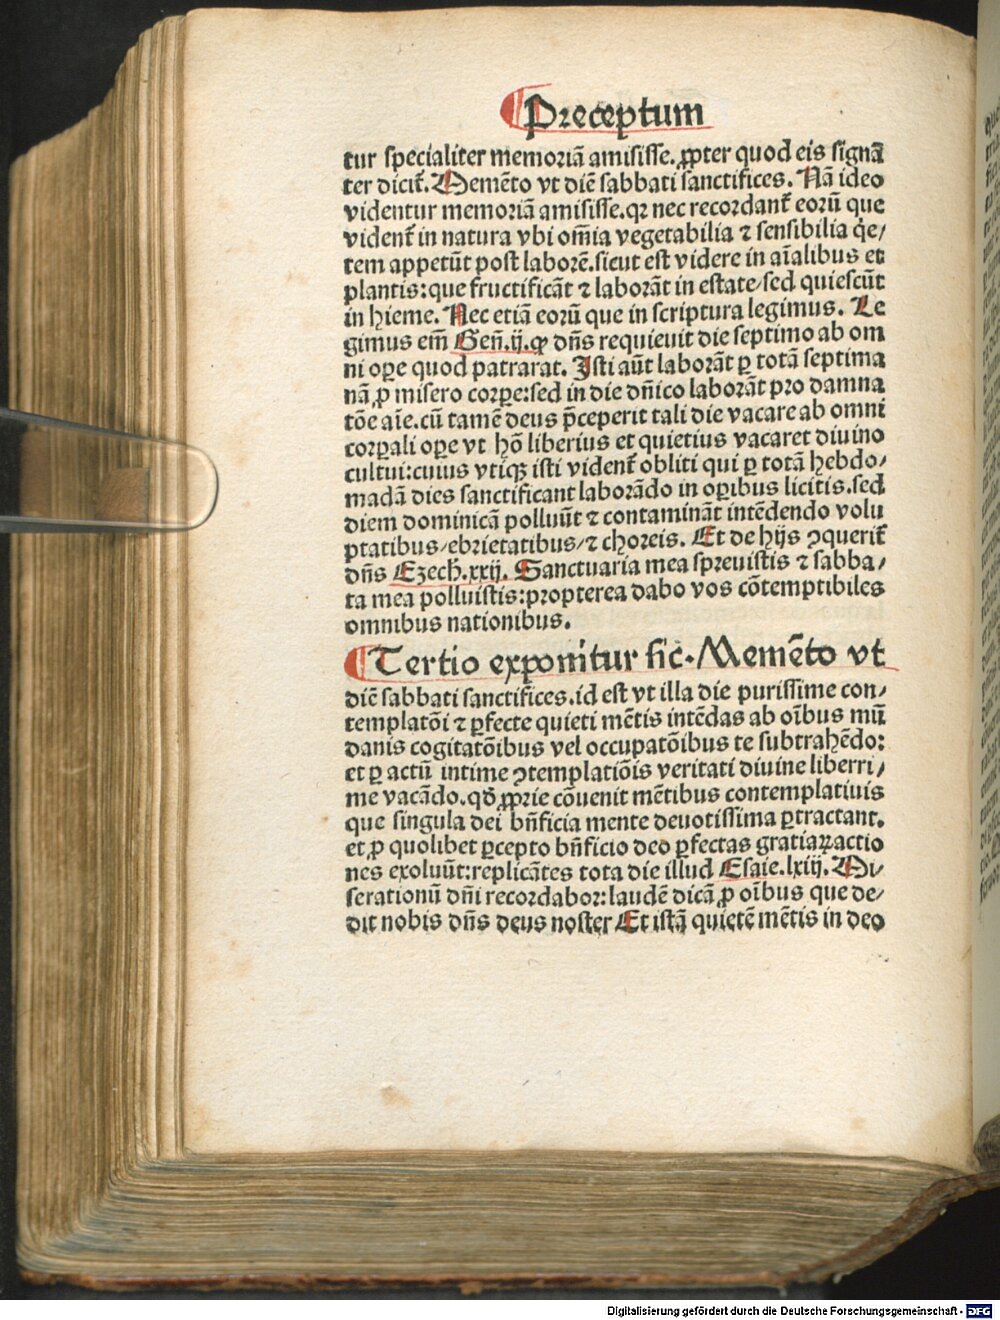 Preceptum
tur specialiter memoriā amisisse. ꝓpter quod eis signā
ter dicit᷑. Memēto vt diē sabbati sanctifices. Nā ideo
videntur memoriā amisisse. qꝛ nec recordant᷑ eorū que
vident᷑ in natura vbi om̄ia vegetabilia ⁊ sensibilia q̇e/
tem appetūt post laborē. sicut est videre in aīalibus et
plantis: que fructificāt ⁊ laborāt in estate/ sed quiescūt
in hieme. Nec etiā eorū que in scriptura legimus. Le
gimus em̄ Geñ. ij. ꝙ dn̄s requieuit die septimo ab om
ni oꝑe quod patrarat. Isti aūt laborāt ꝑ totā septima
nā ꝓ misero corꝑe: sed in die dn̄ico laborāt pro damna
tōe aīe. cū tamē deus p̄ceperit tali die vacare ab omni
corꝑali oꝑe vt hō liberius et quietius vacaret diuino
cultui: cuius vtiqꝫ isti vident᷑ obliti qui ꝑ totā hebdo/
madā dies sanctificant laborādo in oꝑibus licitis. sed
diem dominicā polluūt ⁊ contamināt intēdendo volu
ptatibus/ ebrietatibus/ ⁊ choreis. Et de hijs ꝯquerit᷑
dn̄s Ezech. xxij. Sanctuaria mea spreuistis ⁊ sabba/
ta mea polluistis: propterea dabo vos cōtemptibiles
omnibus nationibus.
Tertio exponitur sic. Memēto vt
diē sabbati sanctifices. id est vt illa die purissime con/
templatōi ⁊ ꝑfecte quieti mētis intēdas ab oībus mū
danis cogitatōibus vel occupatōibus te subtrahēdo:
et ꝑ actū intime ꝯtemplatiōis veritati diuine liberri/
me vacādo. qđ ꝓprie cōuenit mētibus contemplatiuis
que singula dei bn̄ficia mente deuotissima ꝑtractant.
et ꝓ quolibet ꝑcepto bn̄ficio deo ꝑfectas gratiaꝝ actio
nes exoluūt: replicātes tota die illud Esaie. lxiij. Mi/
serationū dn̄i recordabor: laudē dicā ꝓ oībus que de/
dit nobis dn̄s deus noster Et istā quietē mētis in deo
Digitalisierung gefördert durch die Deutsche Forschungsgemeinschaft - DFG